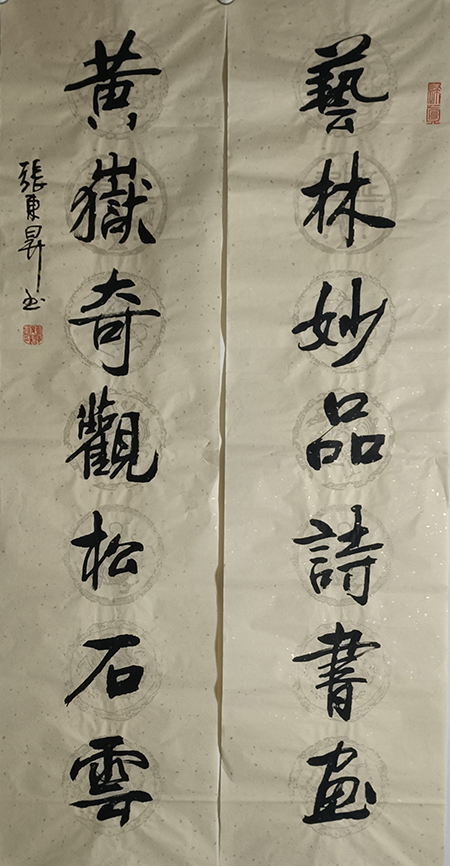 藝林妙品詩書画
黃嶽奇觀松石雲
張東昇书